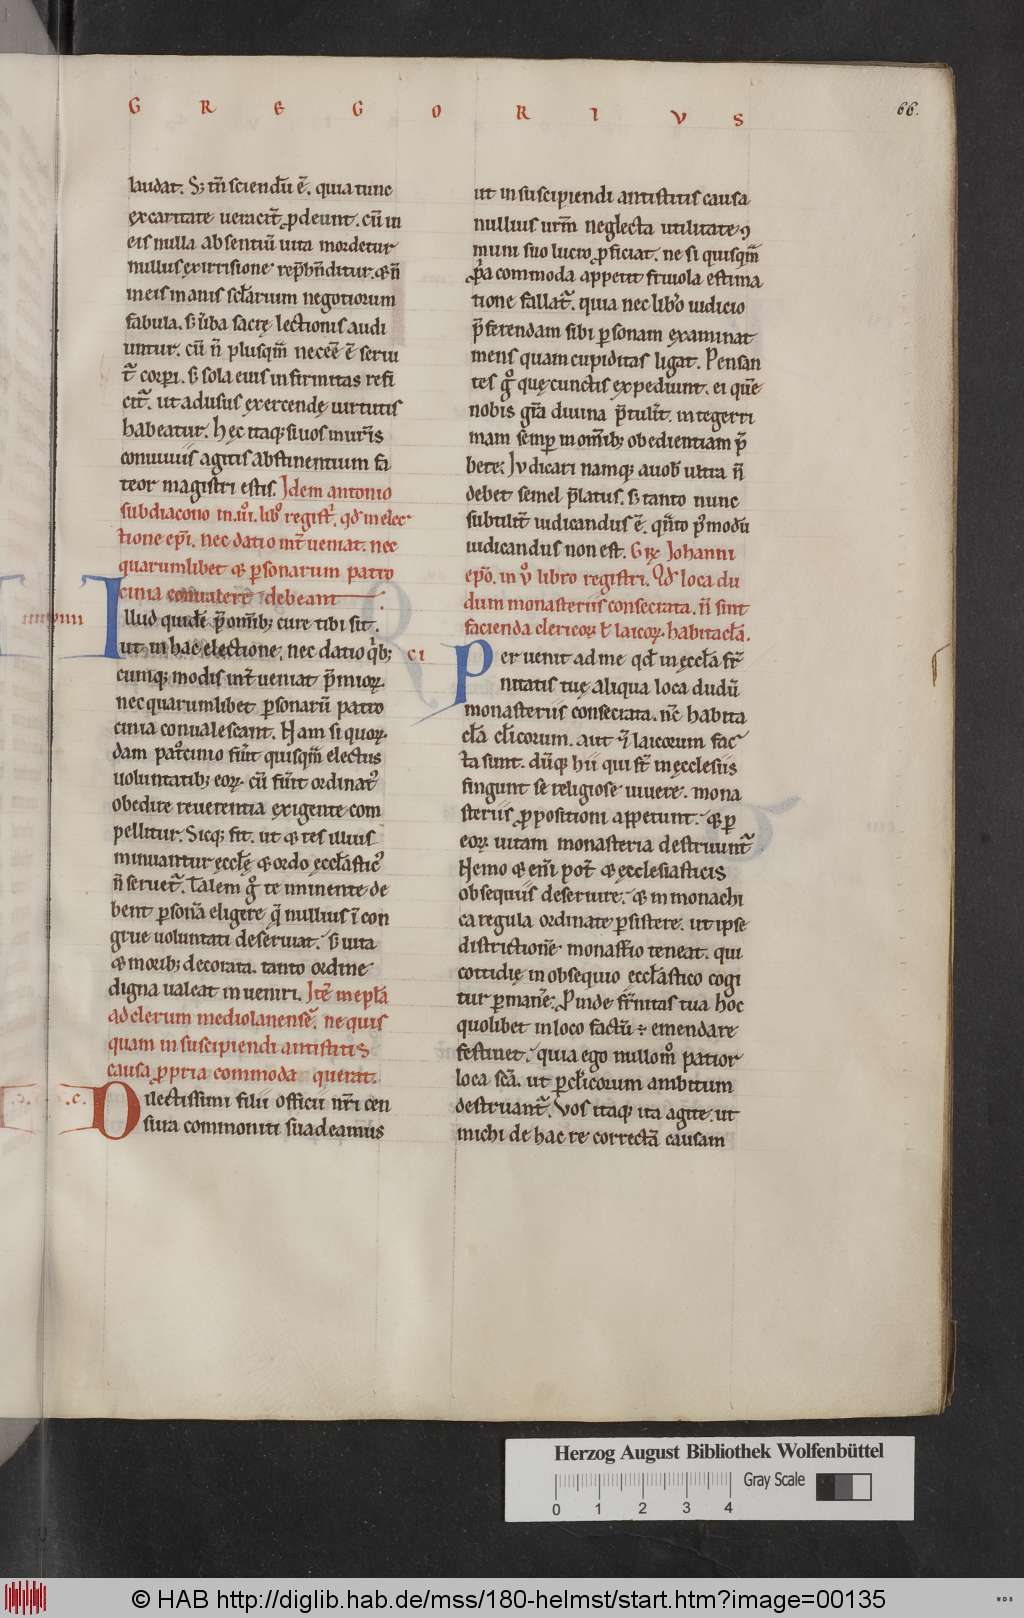 G R E G O R I V S
66.
laudat. S; tn̄ sciendū ē. quia tunc
ex caritate ueracit̄ ꝓdeunt. cū in
eis nulla absentiū uita mordetur
nullus ex irrisione rep̄hn̄ditur. & n̄
in eis inanis scłarium negotiorum
fabula. s; ūba sacrę lectionis audi
untur. cū n̄ plusqm̄ necēe ē serui
t̄ corpri. s; sola eius infirmitas refi
cit̄. ut ad usus exercendę uirtutis
habeatur. hęc itaq; si uos in ur̄is
conuiuiis agitis abstinentium fa
teor magistri estis. Idem antonio
subdiacono in .iii. lib̄ regist̄. qd̄ in elec
tione ep̄i. nec datio int̄ueniat. nec
quarumlibet & ꝑsonarum patro
cinia conualere debeant
Illud quidē p̄ omīb; cure tibi sit.
ut in hac electione. nec datio q̄b;
cumq; modis int̄ueniat p̄mioꝝ.
nec quarumlibet ꝑsonarū patro
cinia conualescant. Nam si quorꝝ
dam pat̄cinio fūit quisqm̄ electus
uoluntatib; eoꝝ. cū fūit ordinat᷒
obedire reuerentia exigente com
pellitur. Sicq; fit. ut & res illius
minuantur ęcclę & ordo ęccłastic᷒
n̄ seruet̄. Talem g̊ te iminente de
bent ꝑsonā eligere q̄ nullius īcon
grue uoluntati deseruiat. s; uita
& morib; decorata. tanto ordine
digna ualeat inueniri. Itē in epła
ad clerum mediolanensē. ne quis
quam in suscipiendi antistitis
causa ꝓpria commoda querat.
.c. Dilectissimi filii officii nr̄i cen
sura commoniti suadeamus
ut in suscipiendi antistitis causa
nullius urm̄ neglecta utilitate ꝯ
muni suo lucro ꝓficiat. ne si quisqm̄
ꝓpa commoda appetit friuola estima
tione fallat̄. quia nec libō iudicio
p̄ferendam sibi ꝑsonam examinat
mens quam cupiditas ligat. Pensan
tes g̊ quę cunctis expediunt. ei quē
nobis grā diuina p̄tulit̄. integerri
mam semꝑ in omīb; obedientiam p̄
bete. Iudicari namq; a uob̄ ultra n̄
debet semel p̄latus. s; tanto nunc
subtilit̄ iudicandus ē. qn̄to p᷒modū
iudicandus non est. Gr̄ę Iohanni
ep̄o. in v̊ libro registri. Qd̄ loca du
dum monasteriis consecrata. n̄ sint
facienda clericoꝝ ł laicoꝝ. habitacła.
ci Peruenit ad me qd̄ in ęccła fr̄
nitatis tuę aliqua loca dudū
monasteriis consecrata. nc̄ habita
cła cłicorum. aut &̄ laicorum fac
ta sunt. dūq; hii qui st̄ in ęcclesiis
fingunt se religiose uiuere. mona
steriis ꝓpositioni appetunt. & ꝑ
eoꝝ uitam monasteria destruunt̄
Nemo & eni̅ pot̄ & ęcclesiasticis
obsequiis deseruire. & in monachi
ca regula ordinate ꝑsistere. ut ipse
districtionē monast̄io teneat. qui
cottidię in obsequio ęccłastico cogi
tur ꝑmanēe. Pinde fr̄nitas tua hoc
quolibet in loco factū ÷ emendare
festinet. quia ego nullom̊ patior
loca scā. ut ꝑ cłicorum ambitum
destruant̄. Vos itaq; ita agite. ut
michi de hac re correctā causam
Herzog August Bibliothek Wolfenbüttel
Gray Scale
0 1 2 3 4
© HAB http://diglib.hab.de/mss/180-helmst/start.htm?image=00135